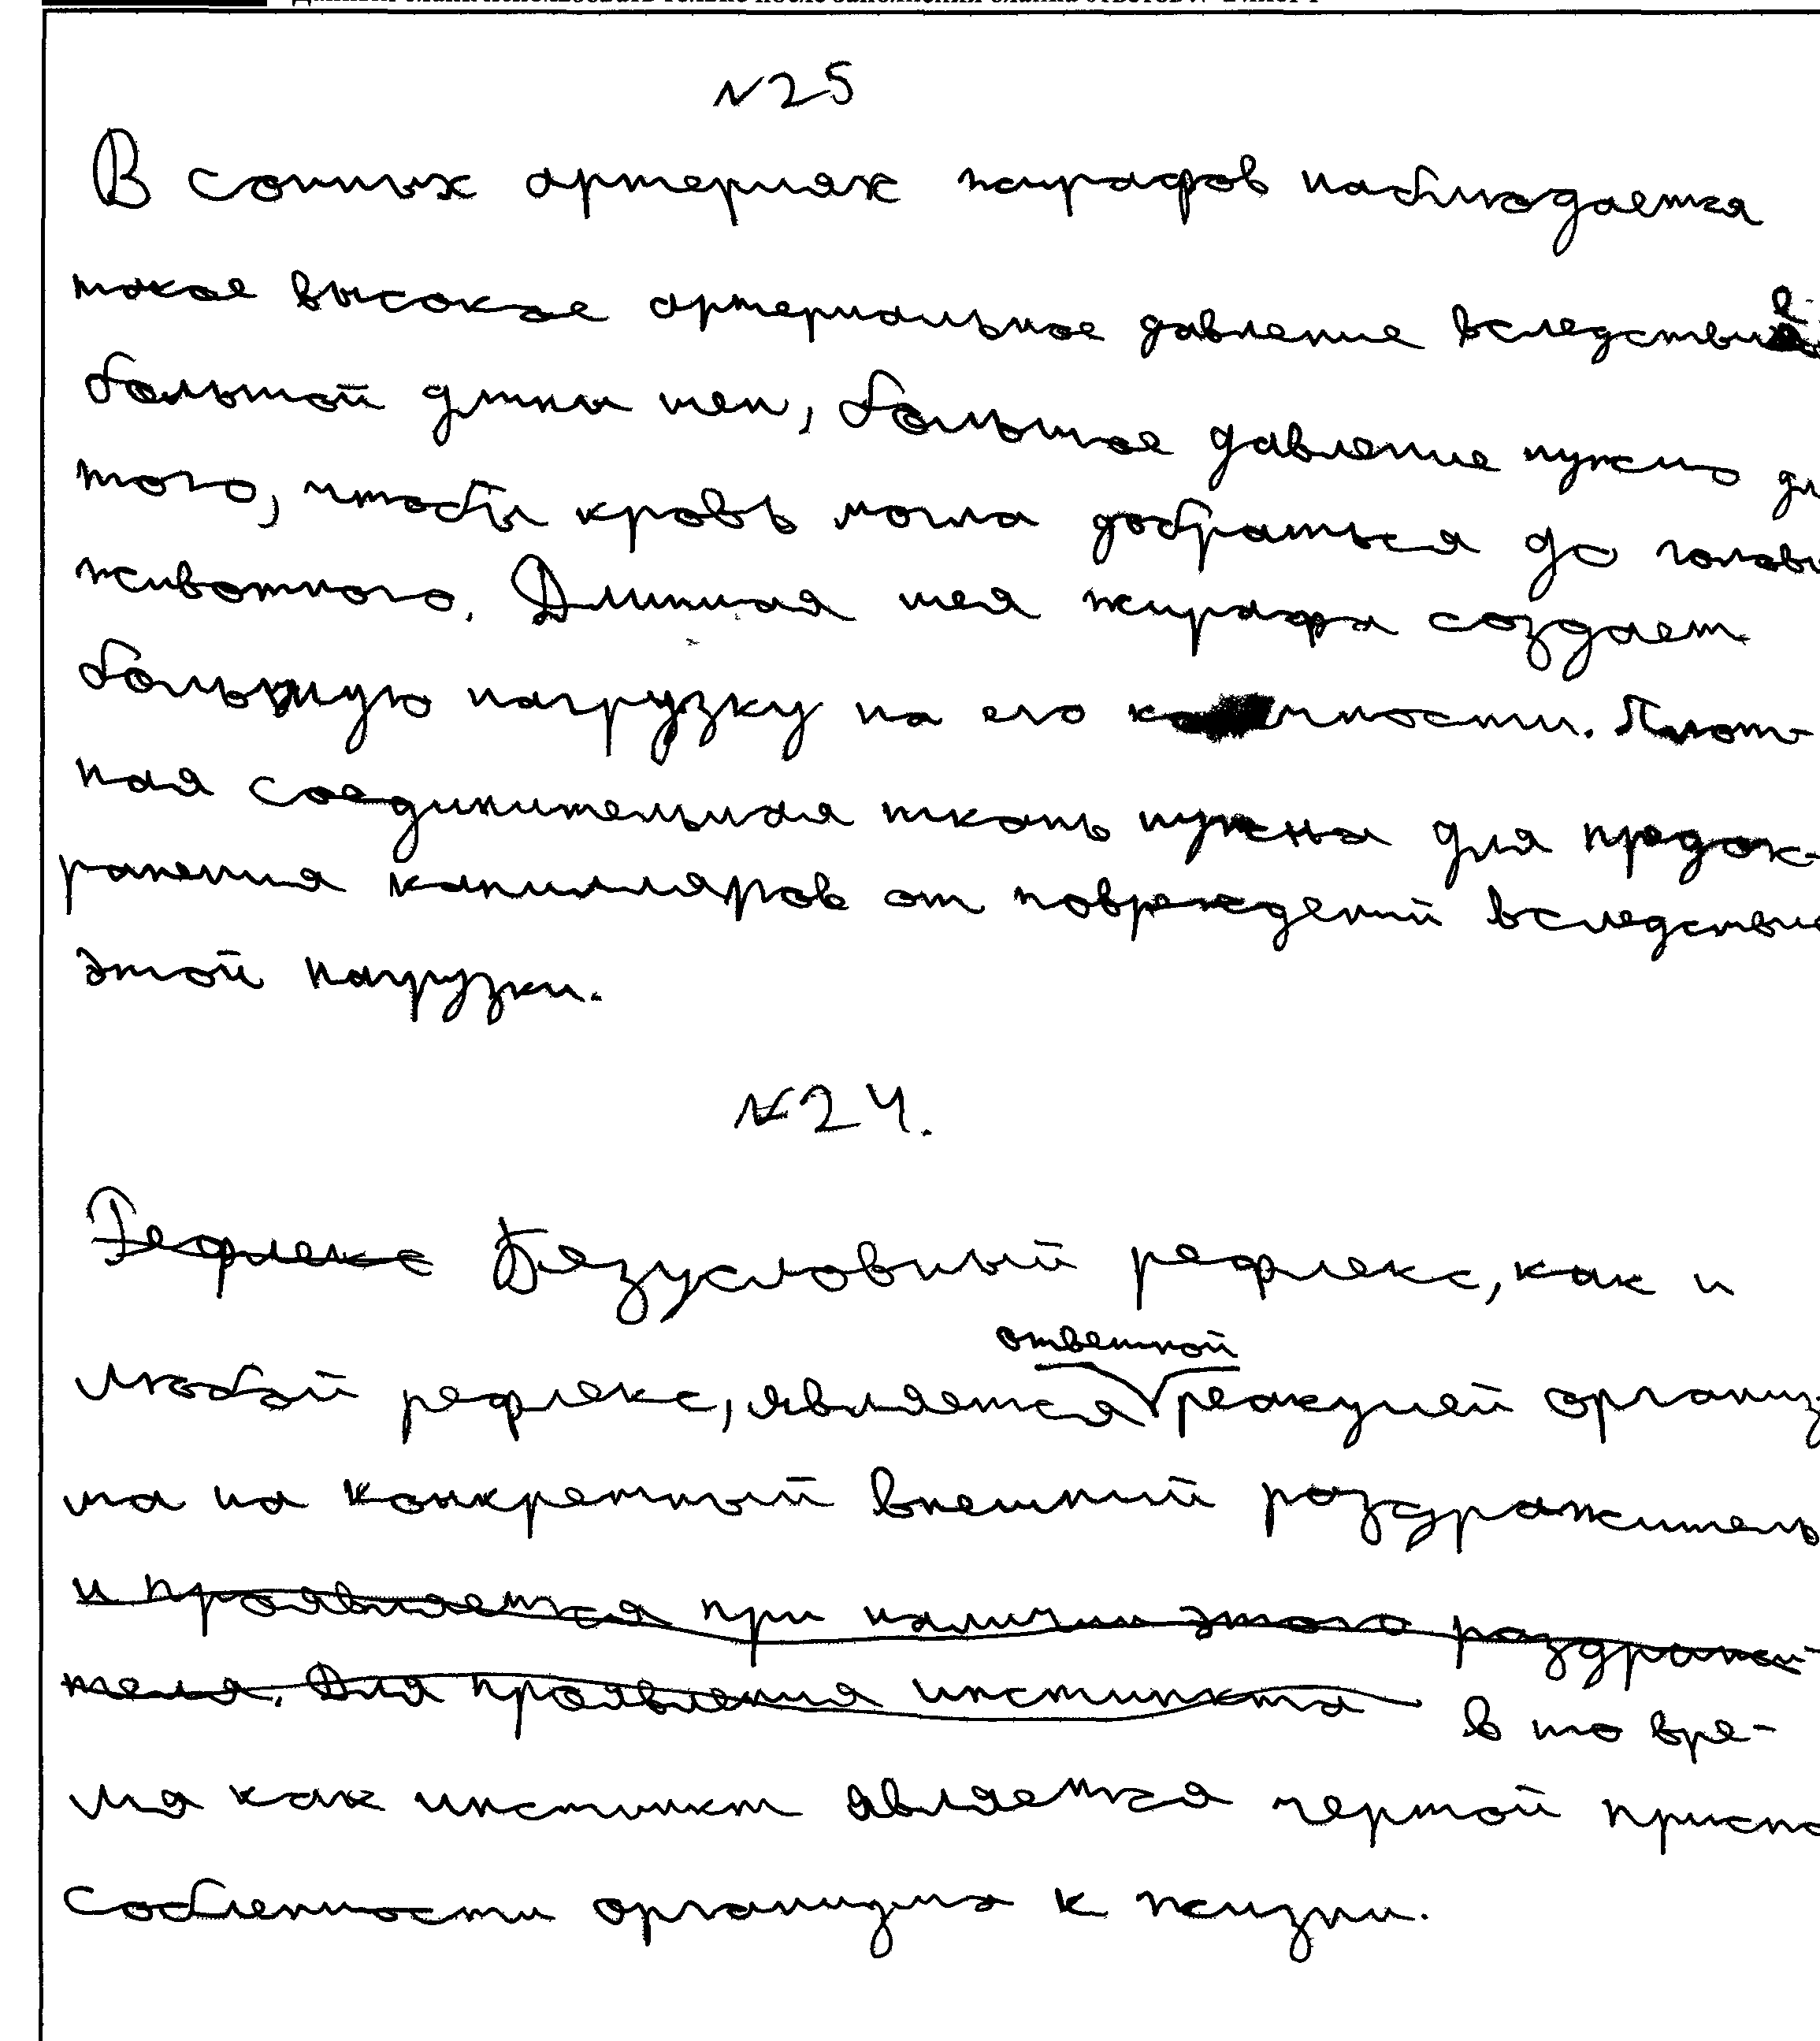 №25
В сонных артериях жирафов наблюдается
такое высокое артериальное давление вследствие
большой длины шеи, большое давление нужно для
того, чтобы кровь могла добраться до головы
животного. Длинная шея жирафа создает
большую нагрузку на его конечности. Плот-
ная соединительная ткань нужна для предох-
ранения капилляров от повреждений вследствие
этой нагрузки.
№24.
Рефлекс Безусловный рефлекс, как и
ответной
любой рефлекс, является реакцией организ
ма на конкретный внешний раздражитель
и проявляется при наличии этого раздражи-
теля. Для проявления инстинкта в то вре-
мя как инстинкт является чертой приспо
собленности организма к жизни.